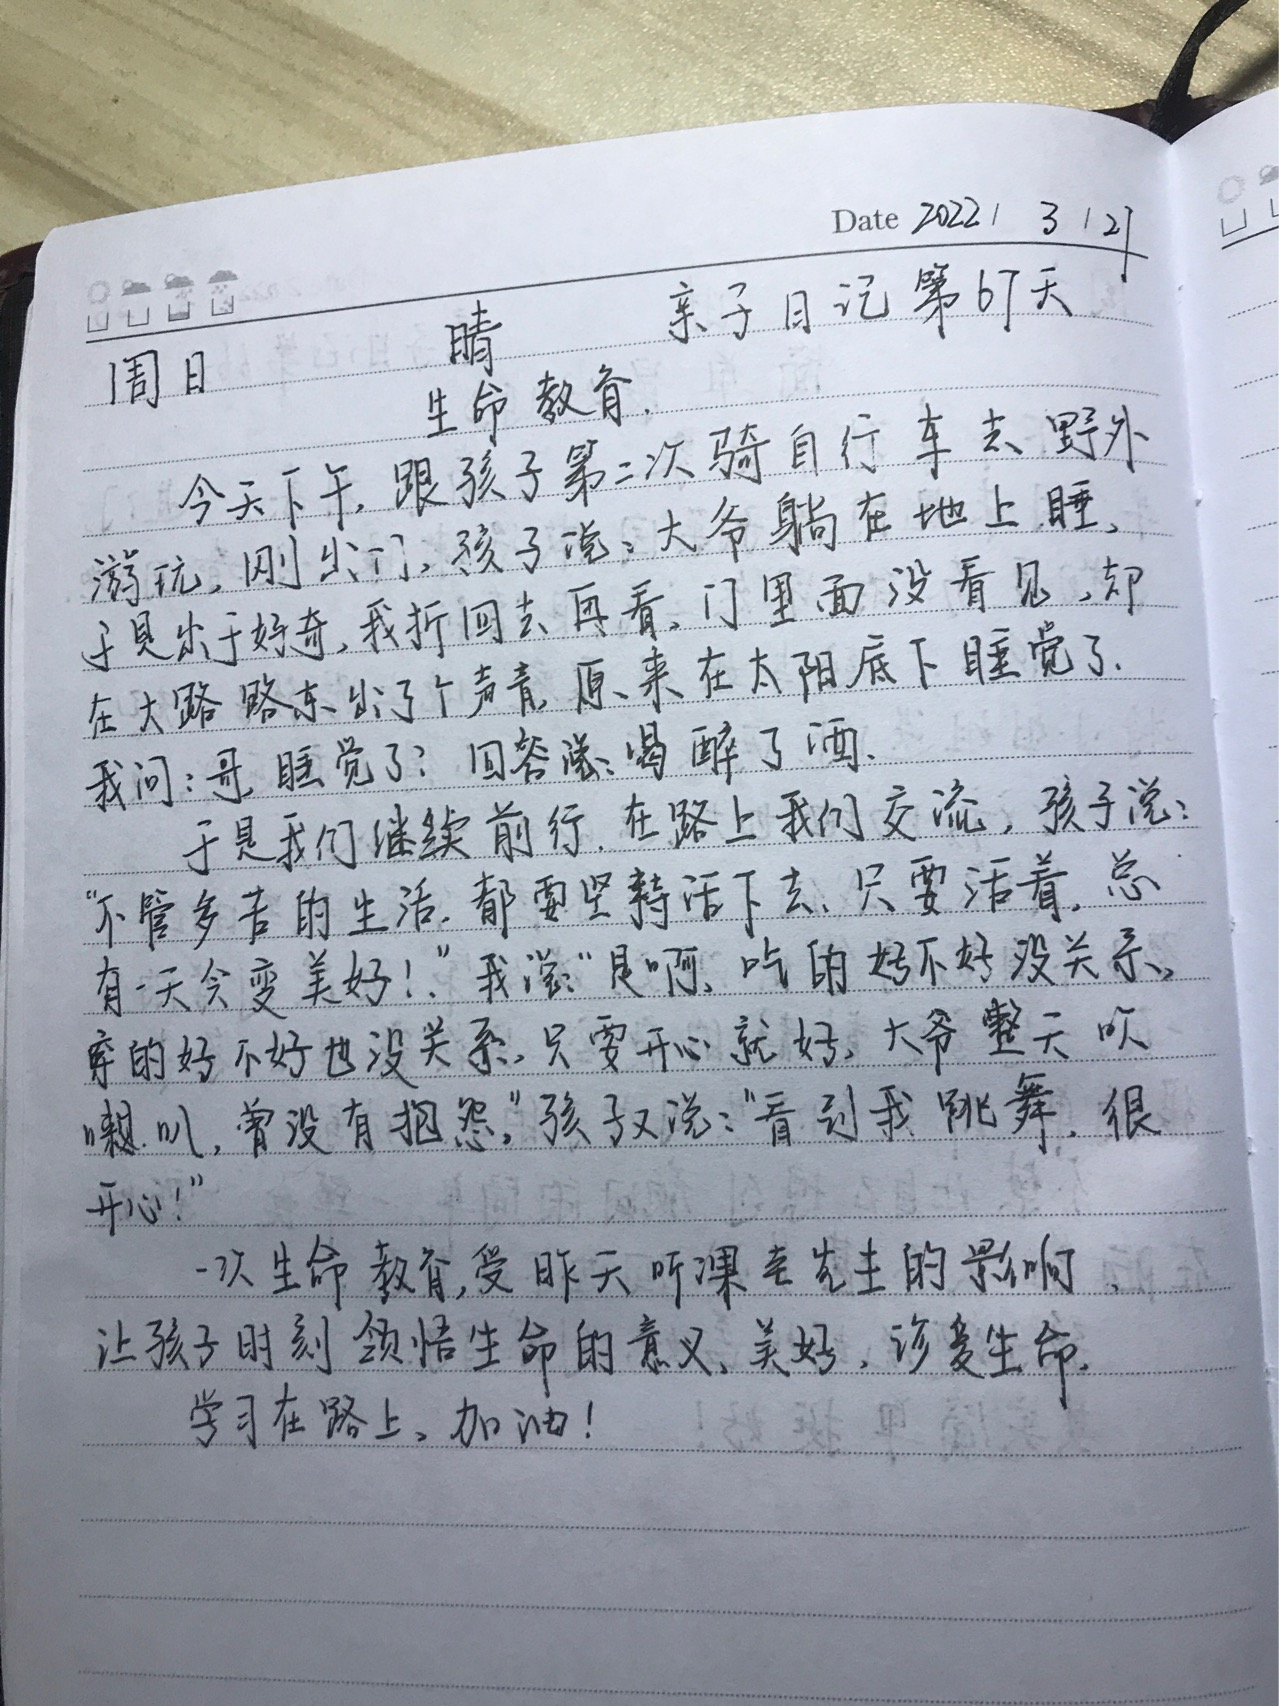 Date 2022 / 3 / 27
周日 晴 亲子日记第67天
生命教育.
今天下午,跟孩子第二次骑自行车去野外
游玩,刚出门,孩子说:大爷躺在地上睡,
于是出于好奇,我折回去再看,门里面没看见,却
在大路路东出了个声音,原来在太阳底下睡觉了.
我问:哥,睡觉了?回答说:喝醉了酒.
于是我们继续前行.在路上我们交流,孩子说:
“不管多苦的生活.都要坚持活下去、只要活着,总
有一天会变美好!.”我说:“是啊、吃的好不好没关系,
穿的好不好也没关系,只要开心就好,大爷整天吹
喇叭,曾没有抱怨。”孩子又说:“看到我跳舞,很
开心!”
一次生命教育,受昨天听课 先生的影响,
让孩子时刻领悟生命的意义、美好,珍爱生命.
学习在路上、加油!